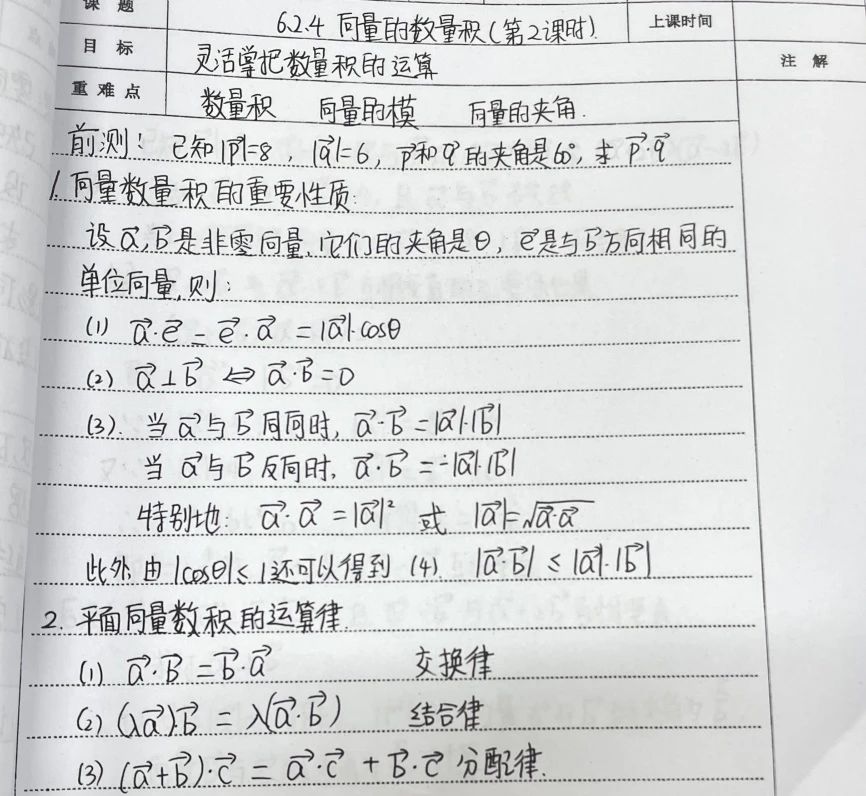 课 题 6.2.4 向量的数量积(第2课时). 上课时间
目 标 灵活掌把数量积的运算 注 解
重 难 点 数量积 向量的模 向量的夹角.
前测: 已知|p⃗|=8, |q⃗|=6, p⃗和q⃗的夹角是60°, 求 p⃗·q⃗
1. 向量数量积的重要性质:
设a⃗,b⃗是非零向量,它们的夹角是θ, e⃗是与b⃗方向相同的
单位向量,则:
(1) a⃗·e⃗ = e⃗·a⃗ = |a⃗|·cosθ
(2) a⃗⊥b⃗ ⇔ a⃗·b⃗=0
(3). 当a⃗与b⃗同向时, a⃗·b⃗=|a⃗|·|b⃗|
当a⃗与b⃗反向时, a⃗·b⃗=-|a⃗|·|b⃗|
特别地: a⃗·a⃗=|a⃗|² 或 |a⃗|=√a⃗·a⃗
此外,由|cosθ|≤1还可以得到 (4). |a⃗·b⃗|≤|a⃗|·|b⃗|
2. 平面向量数积的运算律.
(1) a⃗·b⃗=b⃗·a⃗ 交换律
(2) (λa⃗)·b⃗ = λ(a⃗·b⃗) 结合律
(3) (a⃗+b⃗)·c⃗ = a⃗·c⃗ + b⃗·c⃗ 分配律.